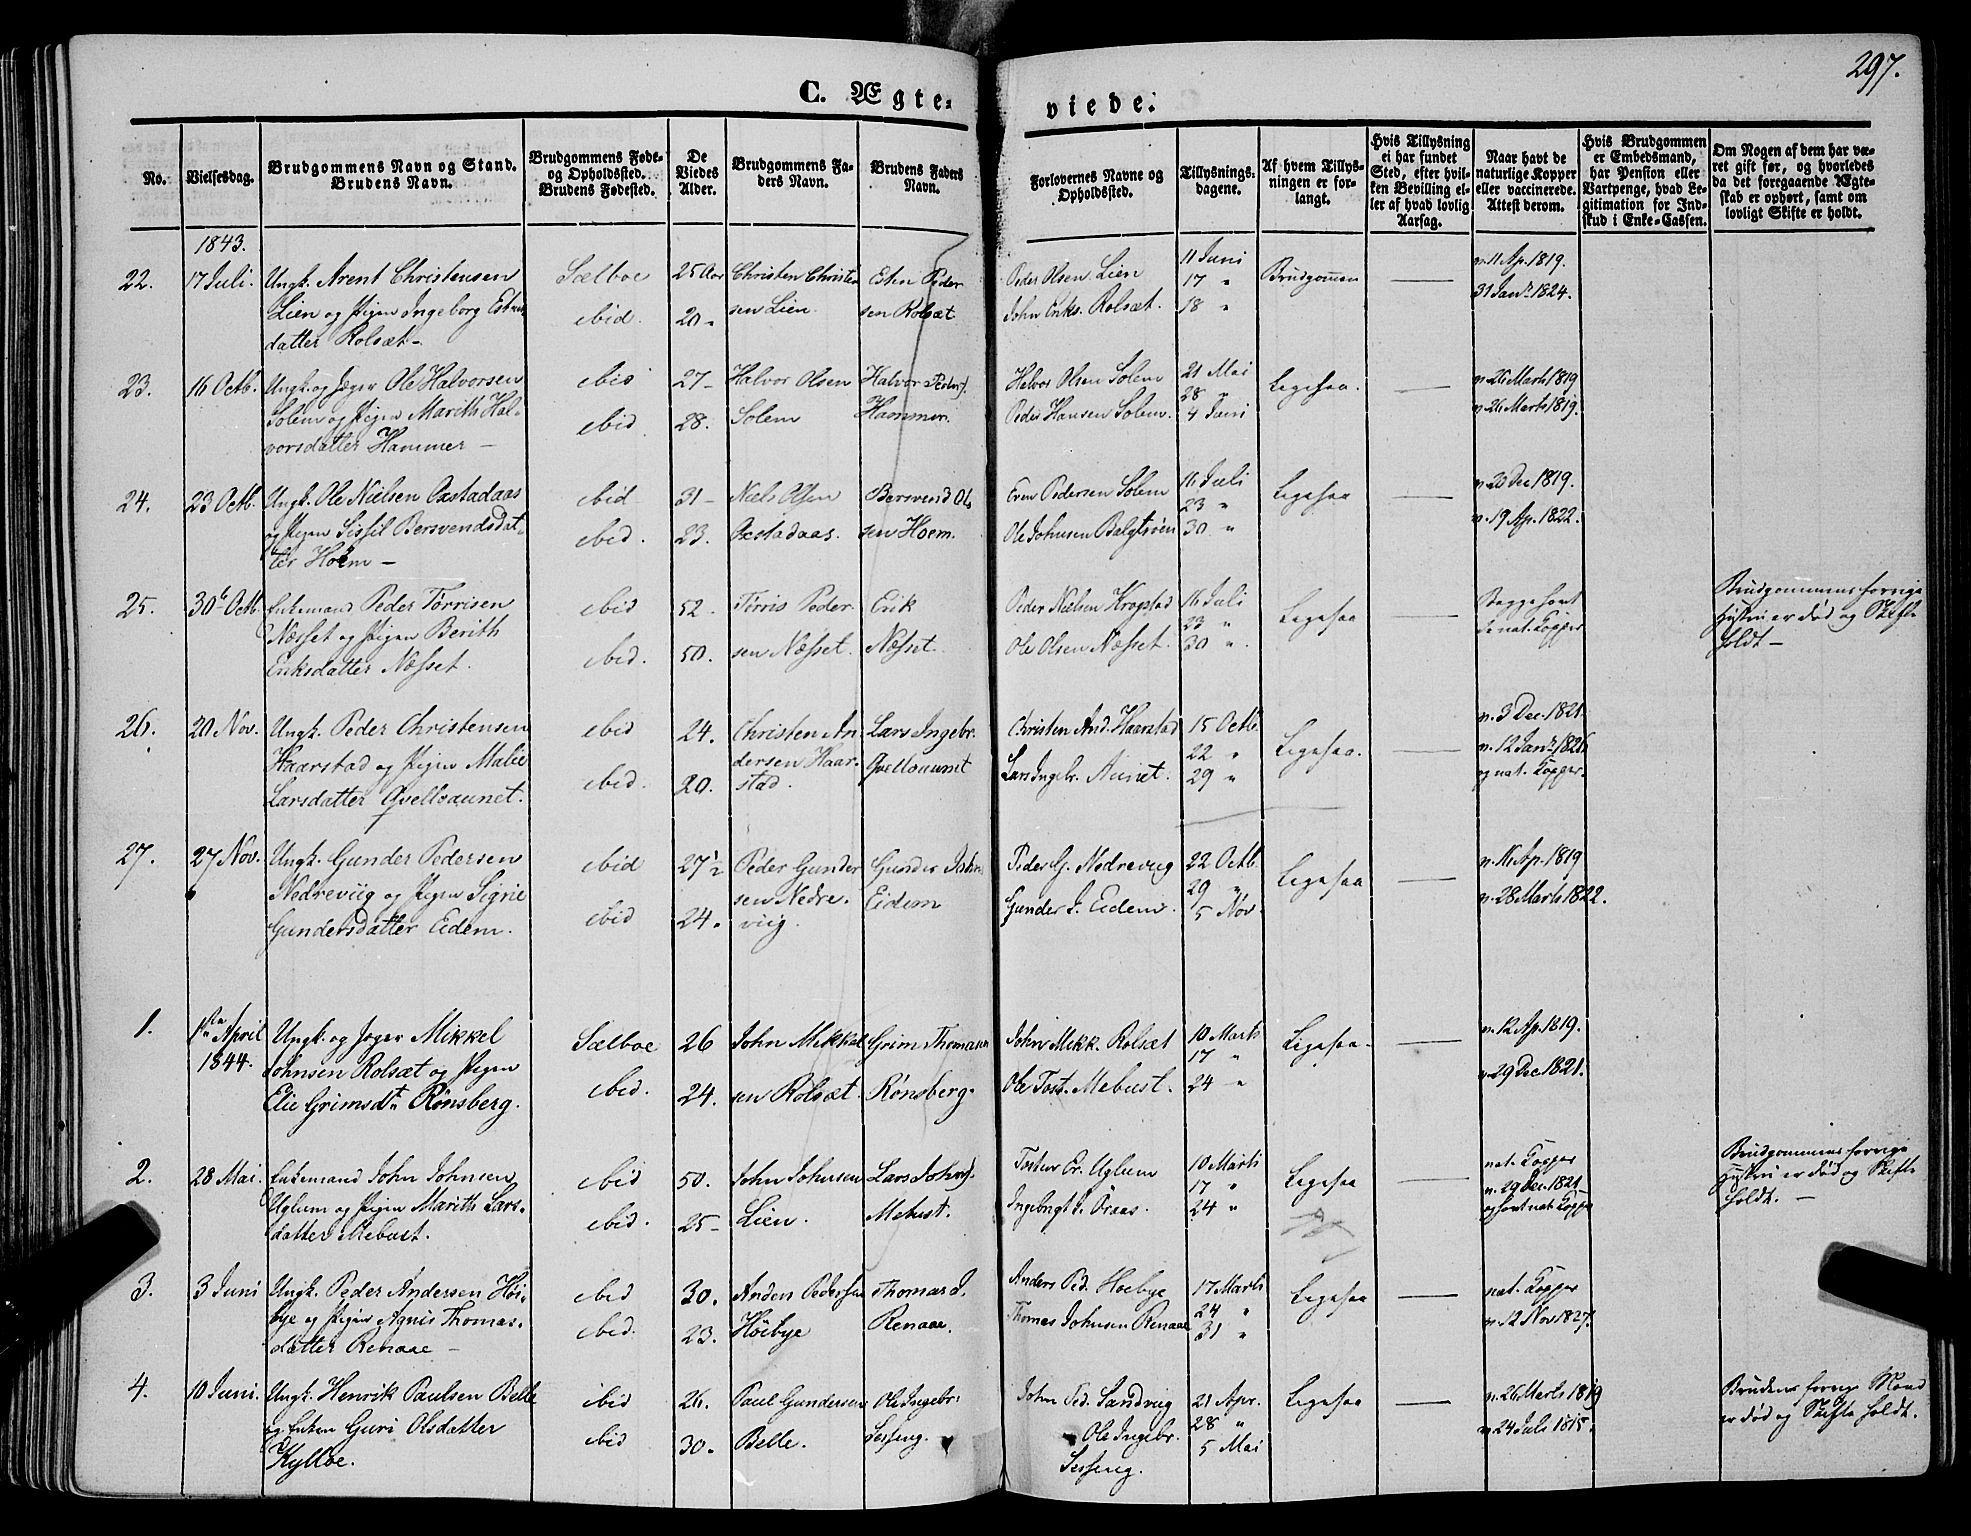 297.
C. Ægte-
viede.
No.
Vielsesdag.
Brudgommens Navn og Stand.
Brudens Navn.
Brudgommens Føde-
og Opholdssted.
Brudens Fødested.
De
Viedes
Alder.
Brudgommens Fa-
ders Navn.
Brudens Faders
Navn.
Forlovernes Navne og
Opholdssted.
Tillysnings-
dagene.
Af hvem Tillys-
ningen er for-
langt.
Hvis Tillysning
ei har fundet
Sted, efter hvil-
ken Bevilling el-
ler af hvad lovlig
Aarsag.
Naar havt de
naturlige Kopper
eller vaccinerede.
Attest derom.
Hvis Brudgommen
er Embedsmand,
har Pension eller
Vartpenge, hvad Le-
gitimation for Ind-
skud i Enke-Cassen.
Om Nogen af dem har væ-
ret gift før, og hvorledes
da det foregaaende Ægte-
skab er ophørt, samt om
lovligt Skifte er holdt.
1843.
22.
17 Juli.
Ungk. Arent Christensen
Lien og Pigen Ingeborg Estens
datter Rolsæt -
Sælboe
ibid.
25 Aar
20 "
Christen Christen
sen Lien.
Estn Peder
sen Rolsæt
Peder Olsen Lien
John Eriks. Rolsæt.
11 Juni
17 "
18 "
Brudgommen
v. 11 Ap. 1819.
31 Janr. 1824.
23.
16 Octb.
Ungk. og Jæger Ole Halvorsen
Solem og Pigen Marith Hal-
vorsdatter Hammer -
ibid
ibid.
27 -
28.
Halvor Olsen
Solem
Halvor Peders.
Hammer.
Halvor Olsen Solem
Peder Hansen Solem.
21 Mai
28 "
4 Juni
Ligesaa.
v. 26 Marts 1819
v. 26 Marts 1819.
24.
23 Octb.
Ungk. Ole Nielsen Oxstadaas
og Pigen Sissil Bersvendsdat-
ter Hoem -
ibid
ibid.
31 -
23.
Niels Olsen
Oxstadaas.
Bersvend Ol-
sen Hoem.
Even Pedersen Solem
Ole Johnsen Balgtrøen
16 Juli
23 "
30 "
Ligesaa
v. 23 Dec 1819.
v. 19 Ap. 1822.
25.
30te Octb
Enkemand Peder Tørrisen
Næsset og Pigen Berith
Eriksdatter Næsset.
ibid
ibid.
52.
50.
Tørris Peder-
sen Næsset.
Erik
Næsset.
Peder Nielsen Krogstad
Ole Olsen Næsset.
16 Juli
23 "
30 "
Ligesaa
Begge havt
de nat. Kopper
Brudgommens forrige
Hustru er død og Skifte
holdt -
26.
20 Nov.
Ungk. Peder Christensen
Haarstad og Pigen Malie
Larsdatter Qvelloaunet.
ibid
ibid.
24.
20.
Christen An-
dersen Haar-
stad.
Lars Ingebr.
Qvelloaunet
Christen And. Haarstad
Lars Ingebr. Aunet.
15 Octb.
22 "
29 "
Ligesaa.
v. 3 Dec. 1821.
v. 12 Janr. 1826
og nat. Kopper.
27.
27 Nov.
Ungk. Gunder Pedersen
Nedreviig og Pigen Signe
Gundersdatter Eidem.
ibid
ibid
27½
24.
Peder Gunder
sen Nedre-
viig.
Gunder John
Eidem
Peder G. Nedreviig
Gunder J. Eidem.
22 Octb.
29 "
5 Nov.
Ligesaa
v. 16 Ap. 1819
v. 28 Marts 1822.
1.
1ste April
1844.
Ungk. og Jæger Mikkel
Johnsen Rolsæt og Pigen
Elie Grimsdtr Rønsberg.
Sælboe
ibid.
26
24.
John Mikkel
sen Rolsæt.
Grim Thomasen
Rønsberg.
John Mikk. Rolsæt
Ole Tost. Mebust.
10 Marts
17 "
24 "
Ligesaa.
v. 12 Ap. 1819.
v. 29 Dec 1821.
2.
28 Mai.
Enkemand John Johnsen
Uglum og Pigen Marith Lars-
datter Mebust.
ibid
ibid.
50.
25 -
John Johnsen
Lien.
Lars Johns.
Mebust.
Tosten Er. Uglum
Ingebrigt J. Ovaas.
10 Marts
17 "
24 "
Ligesaa
nat. Kopper
v. 29 Dec. 1821
og havt nat. Kopper
Brudgommens forrige
Hustru er død og Skifte
holdt. -
3.
3 Juni
Ungk. Peder Andersen Høi-
bye og Pigen Agnis Thomas-
datter Renaae -
ibid
ibid.
30.
23.
Anders Pedersen
Høibye
Thomas J.
Renaae.
Anders Ped. Hoebye
Thomas Johnsen Renaae
17 Marts
24 "
31 "
Ligesaa
nat. Kopper
v. 12 Nov 1827.
4.
10 Juni.
Ungk. Henrik Paulsen Belle
og Enken Guri Olsdatter
Kylloe.
ibid
ibid
26.
30.
Paul Gundersen
Belle.
Ole Ingebr.
Sesseng.
John Ped. Sandvig
Ole Ingebr.
Sesseng.
21 Apr.
28 "
5 Mai
Ligesaa
v. 26 Marts 1819
v. 24 Juli 1815.
Brudens forrige Mand
er død og Skifte holdt.